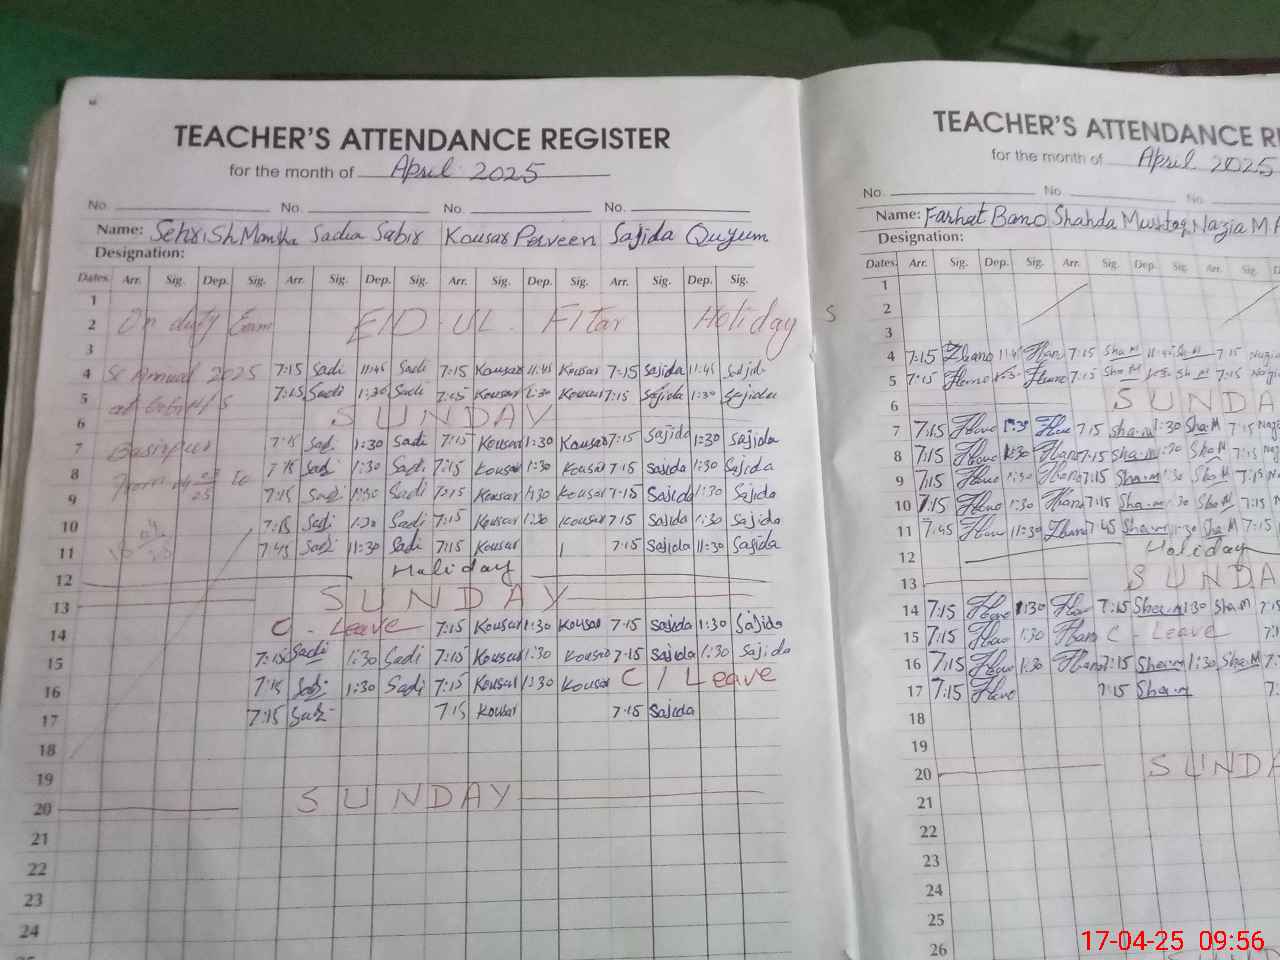 TEACHER'S ATTENDANCE REGISTER
for the month of April 2025
No. No. No. No.
Name: Sehrish Sadia Sabir Kousar Perveen Sajida Quyum
Designation:
Dates Arr. Sig. Dep. Sig. Arr. Sig. Dep. Sig. Arr. Sig. Dep. Sig. Arr. Sig. Dep. Sig.
1
2 On duty Exam EID UL FITar Holiday S
3
4 Annual 2025 7:15 Sadi 11:45 Sadi 7:15 Kousar 11:45 Kousar 7:15 Sajida 11:45 Sajid
5 7:15 Sadi 1:30 Sadi 7:15 Kousar 1:30 Kousar 7:15 Sajida 1:30 Sajida
6 SUNDAY
7 Basirpur 7:15 Sadi 1:30 Sadi 7:15 Kousar 1:30 Kousar 7:15 Sajida 1:30 Sajida
8 From to 7:15 Sadi 1:30 Sadi 7:15 Kousar 1:30 Kousar 7:15 Sajida 1:30 Sajida
9 7:15 Sadi 1:30 Sadi 7:15 Kousar 1:30 Kousar 7:15 Sajida 1:30 Sajida
10 7:15 Sadi 1:30 Sadi 7:15 Kousar 1:30 Kousar 7:15 Sajida 1:30 Sajida
11 7:45 Sadi 11:30 Sadi 7:15 Kousar 7:15 Sajida 11:30 Sajida
12 Holiday
13 SUNDAY
14 C - Leave 7:15 Kousar 1:30 Kousar 7:15 Sajida 1:30 Sajida
15 7:15 Sadi 1:30 Sadi 7:15 Kousar 1:30 Kousar 7:15 Sajida 1:30 Sajida
16 7:15 Sadi 1:30 Sadi 7:15 Kousar 1:30 Kousar C / Leave
17 7:15 Sadi 7:15 Kousar 7:15 Sajida
18
19
20 SUNDAY
21
22
23
24
TEACHER'S ATTENDANCE RE
for the month of April 2025
No. No. No.
Name: Farhat Bano Shahda Mushtaq Nazia M.
Designation:
Dates Arr. Sig. Dep. Sig. Arr. Sig. Dep. Sig. Arr. Sig.
1
2
3
4 7:15 Fbano 11:45 Fbano 7:15 Sha.M 11:45 Sha.M 7:15 Nazi
5 7:15 Fbano 1:30 Fbano 7:15 Sha.M 1:30 Sha.M 7:15 Nazi
6 SUNDA
7 7:15 Fbano 1:30 Fbano 7:15 Sha.m 1:30 Sha.M 7:15 Naz
8 7:15 Fbano 1:30 Fbano 7:15 Sha.m 1:30 Sha.M 7:15 Na
9 7:15 Fbano 1:30 Fbano 7:15 Sha.m 1:30 Sha.M 7:15 N
10 7:15 Fbano 1:30 Fbano 7:15 Sha.m 1:30 Sha.M 7:15 N
11 7:45 Fbano 11:30 Fbano 7:45 Sha.m 11:30 Sha.M 7:15
12 Holiday
13 SUNDA
14 7:15 Fbano 1:30 Fbano 7:15 Sha.m 1:30 Sha.M
15 7:15 Fbano 1:30 Fbano C - Leave
16 7:15 Fbano 1:30 Fbano 7:15 Sha.m 1:30 Sha.M
17 7:15 Fbano 7:15 Sha.m
18
19
20 SUNDA
21
22
23
24
25
26
17-04-25 09:56